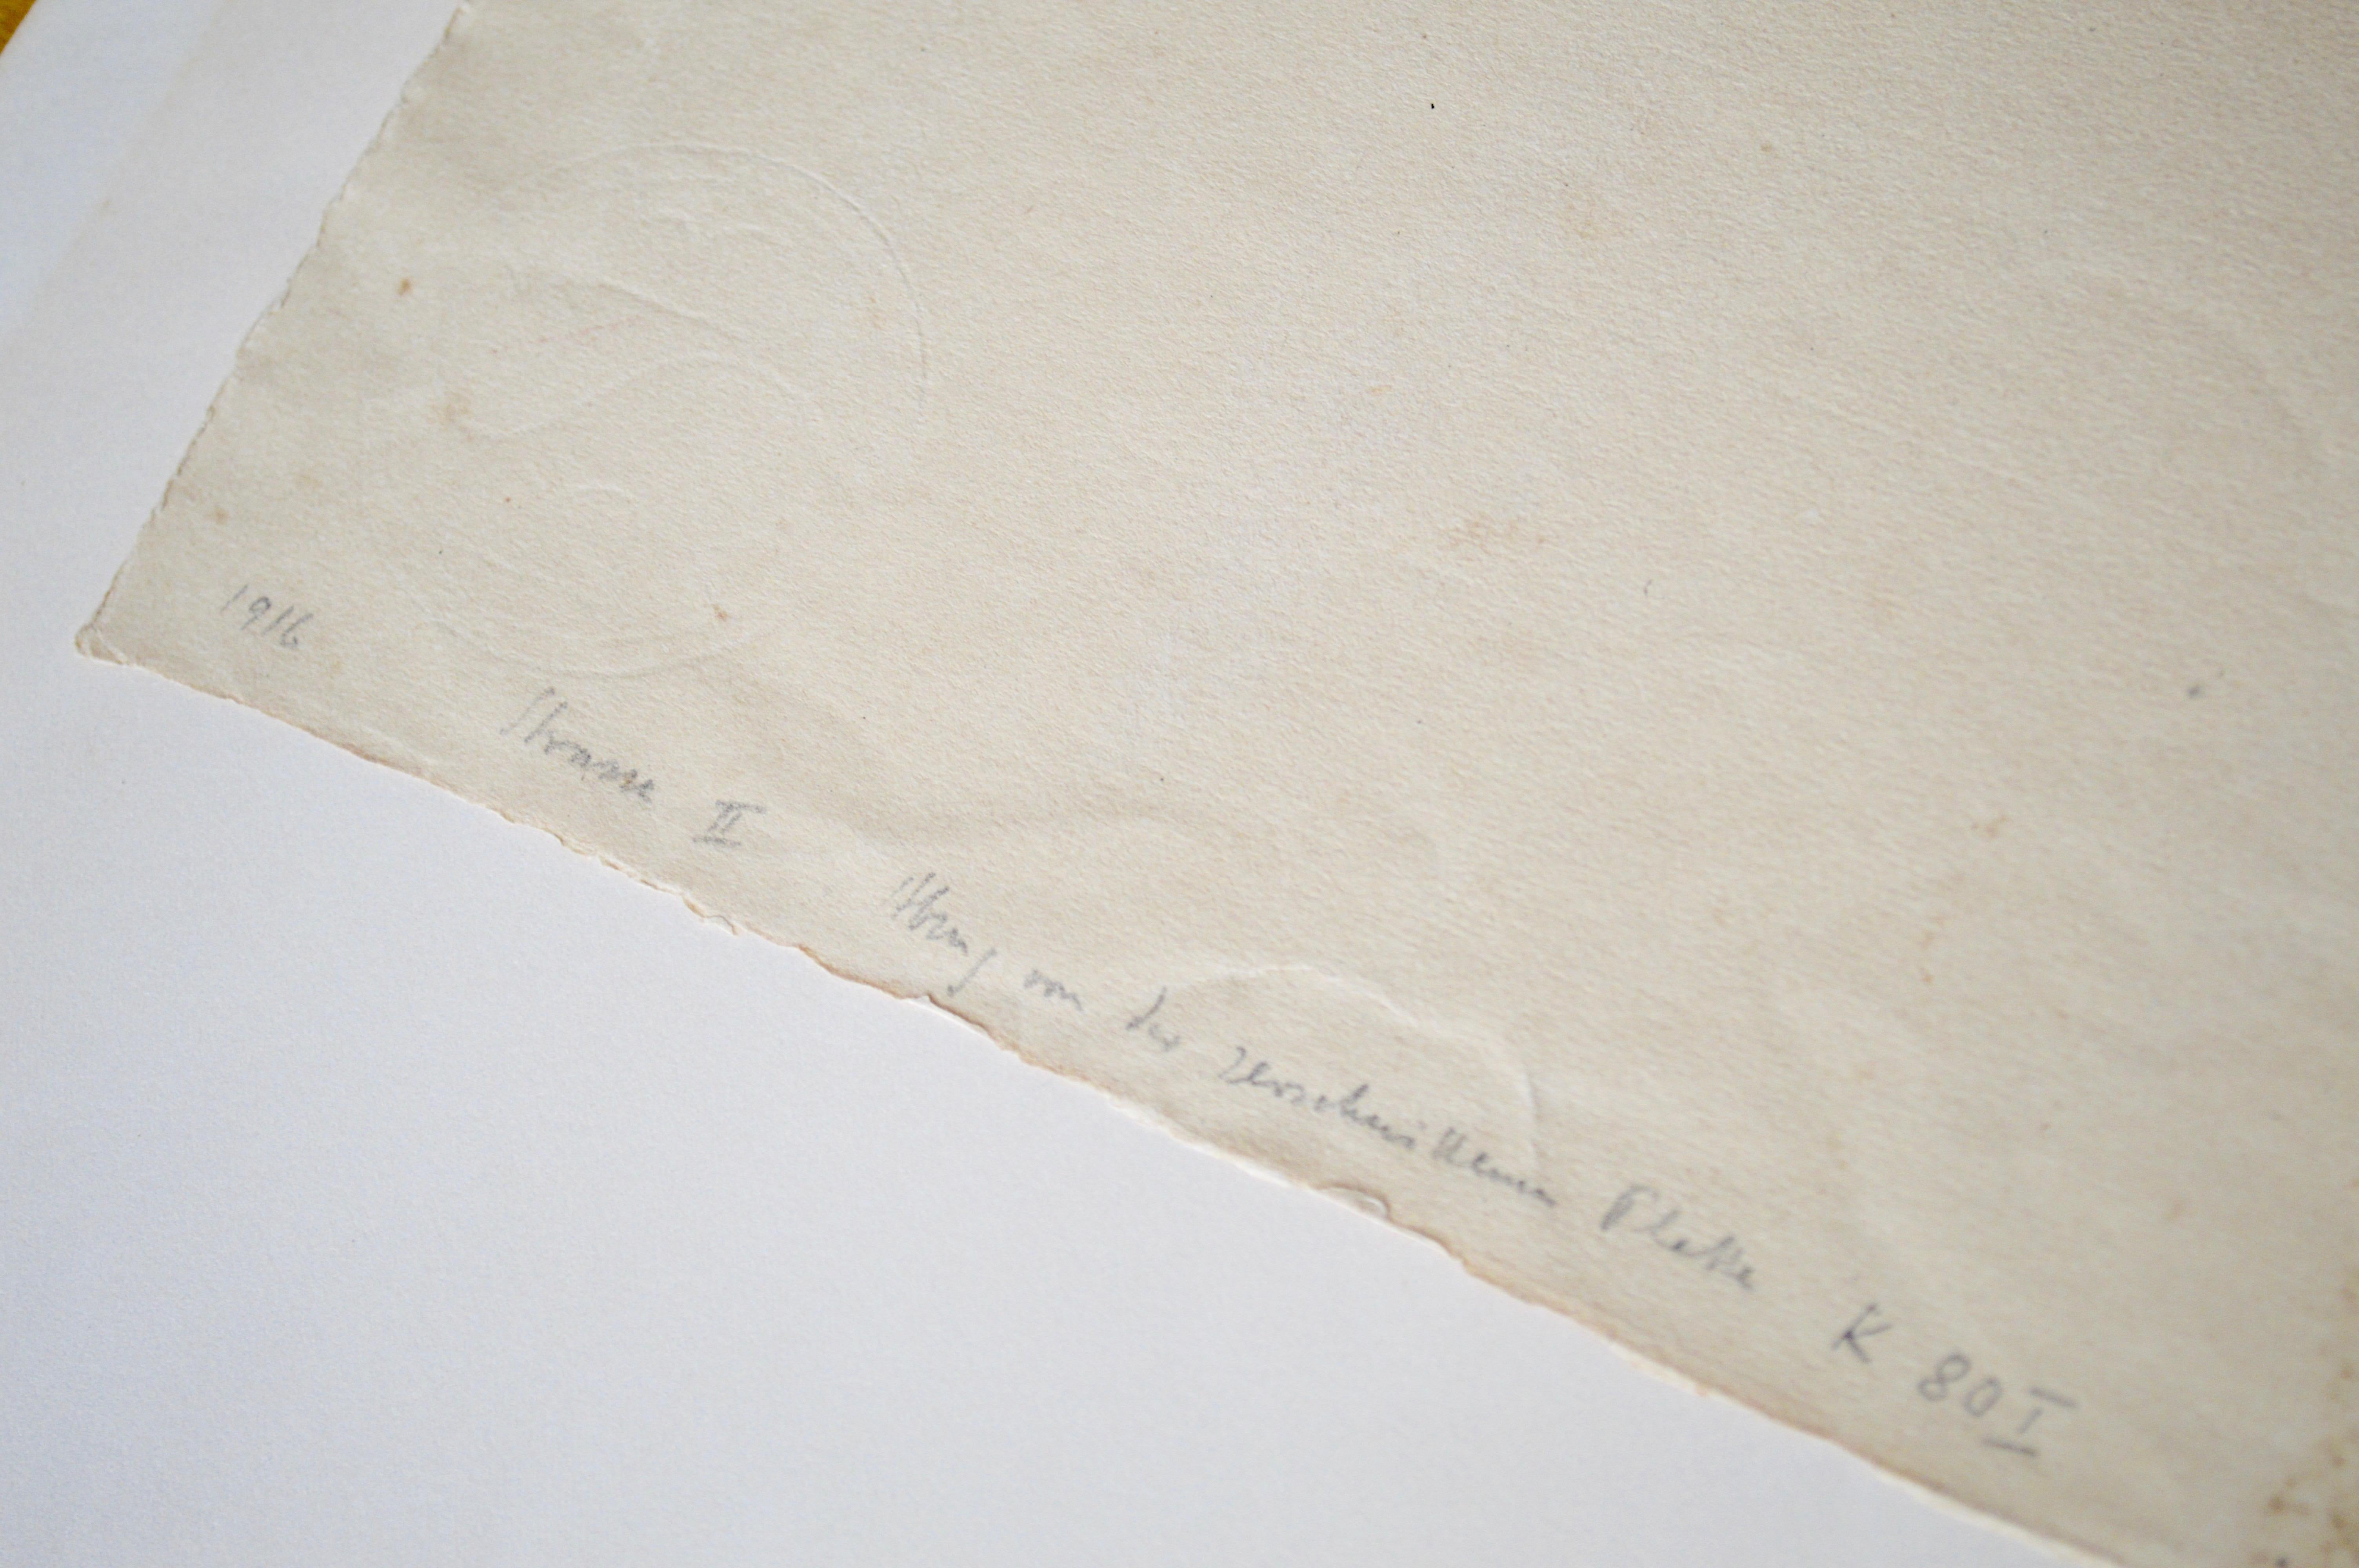 1916 Strasse II Abzug von der zerschnittenen Platte K 80 I